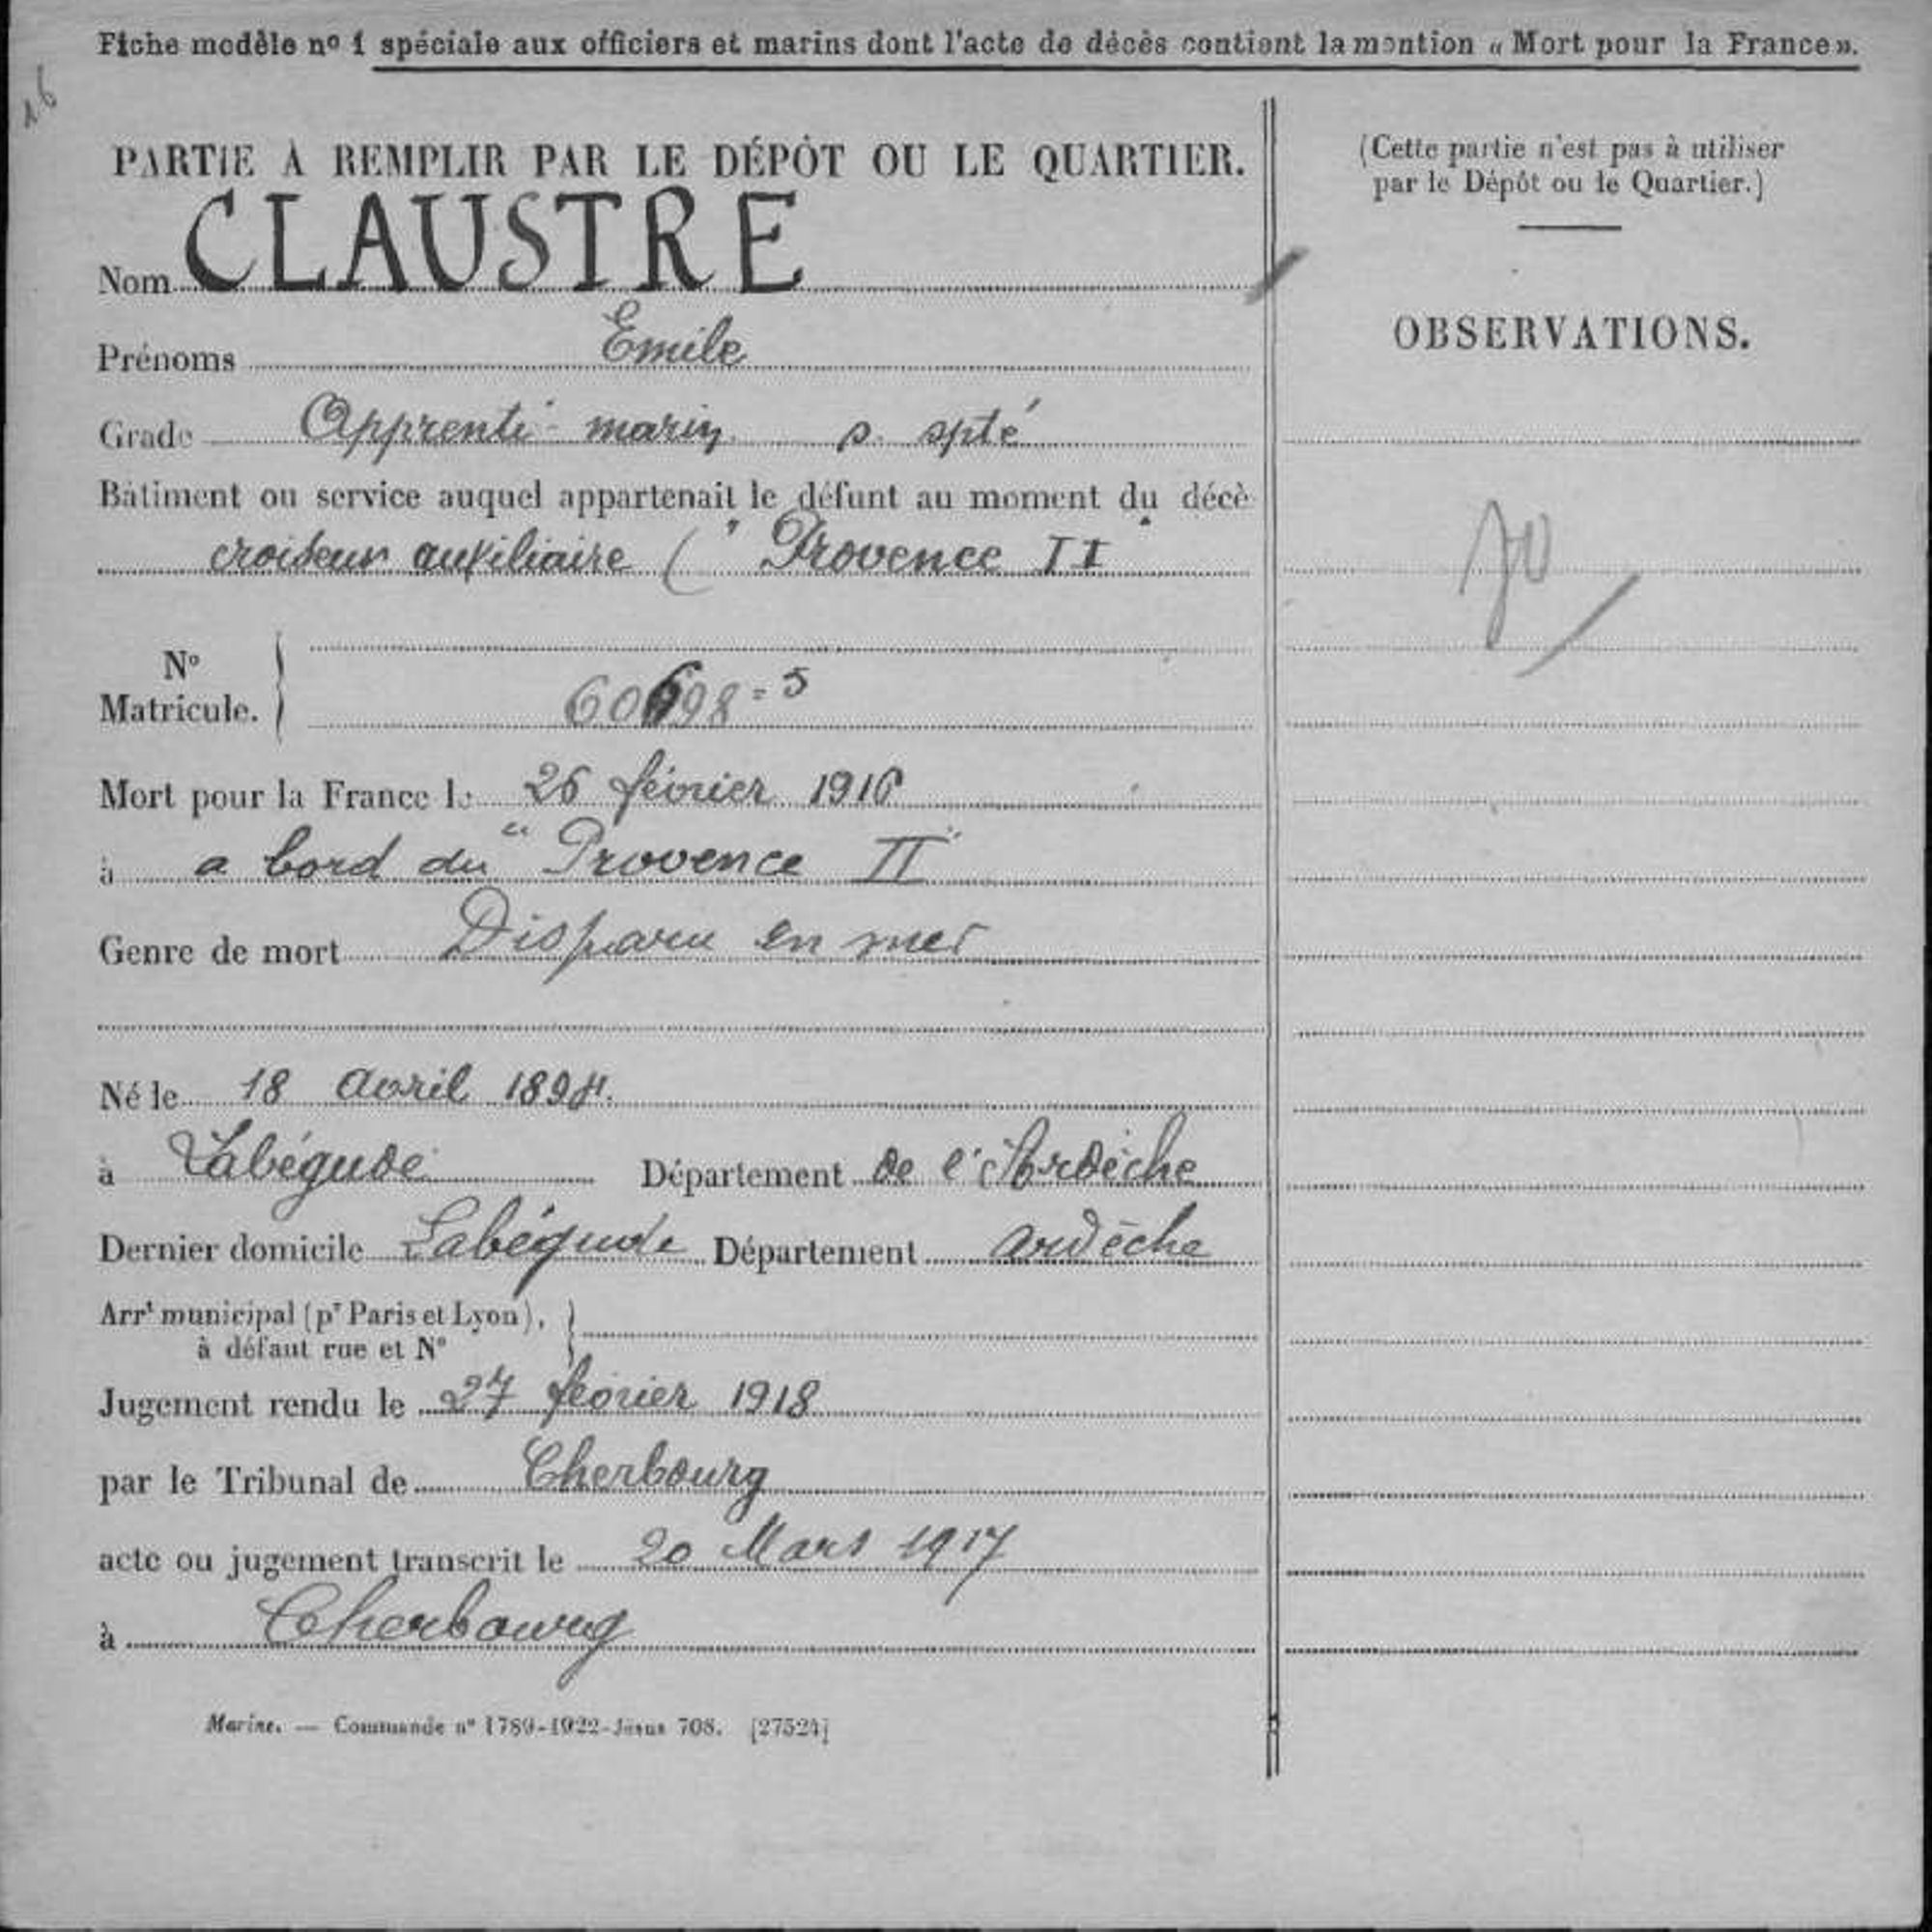 Fiche modèle nº 1 spéciale aux officiers et marins dont l'acte de décès contient la mention « Mort pour la France ».
PARTIE A REMPLIR PAR LE DÉPÔT OU LE QUARTIER.
Nom CLAUSTRE
Prénoms Emile
Grade Apprenti-marin s. spté
Bâtiment ou service auquel appartenait le défunt au moment du décè
croiseur auxiliaire ( "Provence II"
Nº
Matricule. -5
Mort pour la France le 26 février 1916
à a bord du "Provence II"
Genre de mort Disparu en mer
Né le 18 Avril 1894.
à Labégude Département de l'Ardèche
Dernier domicile Labégude Département Ardèche
Arrt municipal (pr Paris et Lyon),
à défaut rue et Nº
Jugement rendu le 27 février 1918
par le Tribunal de Cherbourg
acte ou jugement transcrit le 20 Mars 1917
à Cherbourg
Marine. — Commande nº 1789-1922-Jésus 708. [27524]
(Cette partie n'est pas à utiliser
par le Dépôt ou le Quartier.)
OBSERVATIONS.